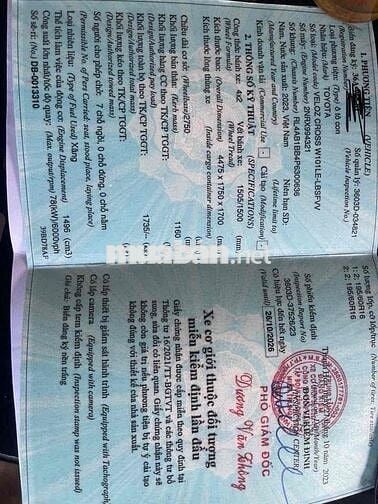 1. PHƯƠNG TIỆN (VEHICLE)
(Registration Number)
Số quản lý: 3603D-034821
(Vehicle Inspection No.)
Loại phương tiện: (Type) ô tô con
Nhãn hiệu: (Mark) TOYOTA
Số loại: (Model code) VELOZ CROSS W101LE-LBSFVV
Số khung: (Chassis Number)
Năm, Nước sản xuất: 2023, Việt Nam
Niên hạn SD:
(Manufactured Year and Country)
(Lifetime limit to)
Kinh doanh vận tải (Commercial Use)
Cải tạo (Modification)
2. THÔNG SỐ KỸ THUẬT (SPECIFICATIONS)
Công thức bánh xe: 4x2
Vết bánh xe: 1505/1500
(Wheel Formula)
(Wheel Tread)
Kích thước bao: (Overall Dimension) 4475 x 1750 x 1700 (mm)
Kích thước lòng thùng xe
(Inside cargo container dimension)
Chiều dài cơ sở: (Wheelbase) 2750 (mm)
Khối lượng bản thân: (Kerb mass) 1160 (kg)
Khối lượng hàng CC theo TK/CP TGGT:
(Design/Authorized pay load)
Khối lượng toàn bộ theo TK/CP TGGT: 1735/
(Design/Authorized total mass)
Khối lượng kéo theo TK/CP TGGT:
(Design/Authorized towed mass)
Số người cho phép chở: 7 chỗ ngồi, 0 chỗ đứng, 0 chỗ nằm
(Permissible No. of Pers Carried: seat, stood place, laying place)
Loại nhiên liệu: (Type of Fuel Used) Xăng
Thể tích làm việc của động cơ: (Engine Displacement) 1496 (cm3)
Công suất lớn nhất/tốc độ quay: (Max. output/rpm) 78(kW)/6000vph
Số sê-ri: (No.) DB-0013310
muaban.net
Số lượng lốp, cỡ lốp/trục (Number of tires, Tire size/axle)
1: 2; 195/60R16
2: 2; 195/60R16
Số phiếu kiểm định
(Inspection Report No)
3603D-37526/23
Có hiệu lực đến hết ngày
(Valid until) 26/10/2026
tháng 10 năm 2023
PHÓ GIÁM ĐỐC
Xe cơ giới thuộc đối tượng
miễn kiểm định lần đầu
Giấy chứng nhận được cấp miễn theo quy định tại
Thông tư 16/2021/TT-BGTVT và các thông tư bổ
sung, sửa đổi có liên quan. Giấy chứng nhận này sẽ
không còn giá trị nếu phương tiện bị tự ý cải tạo
không đúng với thiết kế của nhà sản xuất.
Có thiết bị giám sát hành trình (Equipped with Tachograph)
Có lắp camera (Equipped with camera)
Không cấp tem kiểm định (Inspection stamp was not issued)
Ghi chú: Biển đăng ký nền trắng